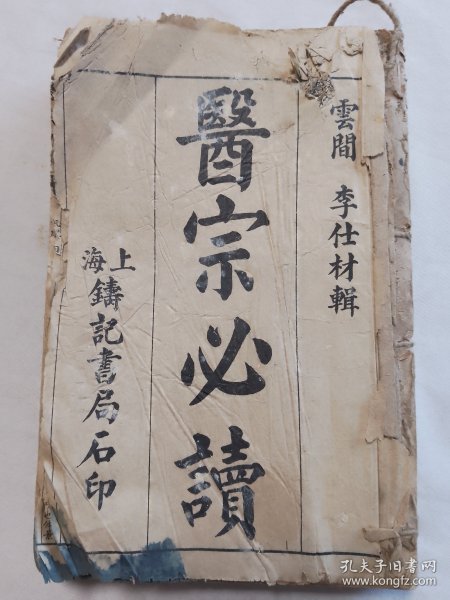 雲間 李仕材輯
醫宗必讀
上海鑄記書局石印
孔夫子旧书网
www.kongfz.com